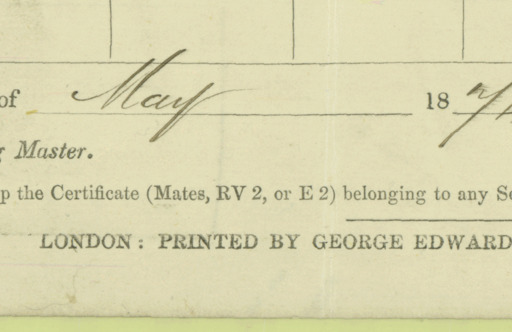 of May 187
Master.
the Certificate (Mates, RV 2, or E 2) belonging to any
LONDON: PRINTED BY GEORGE EDWARD